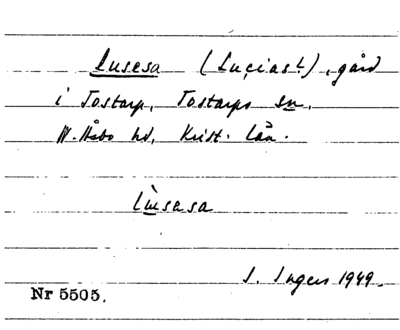 Lusesa (Lucias?), gård
i Tostarp, Tostarps sn.
N. Åsbo hd, Krist. län.
Lùsasa
I. Ingers 1949.
Nr 5505.